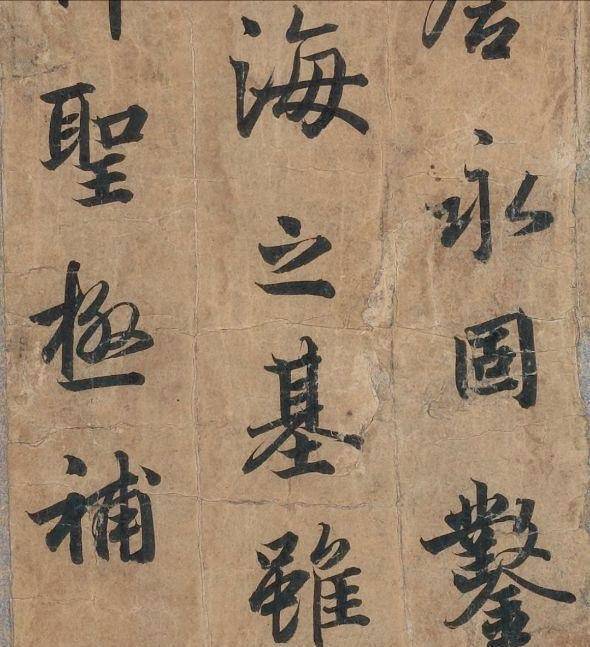 永固鑿
海之基雖
聖極補